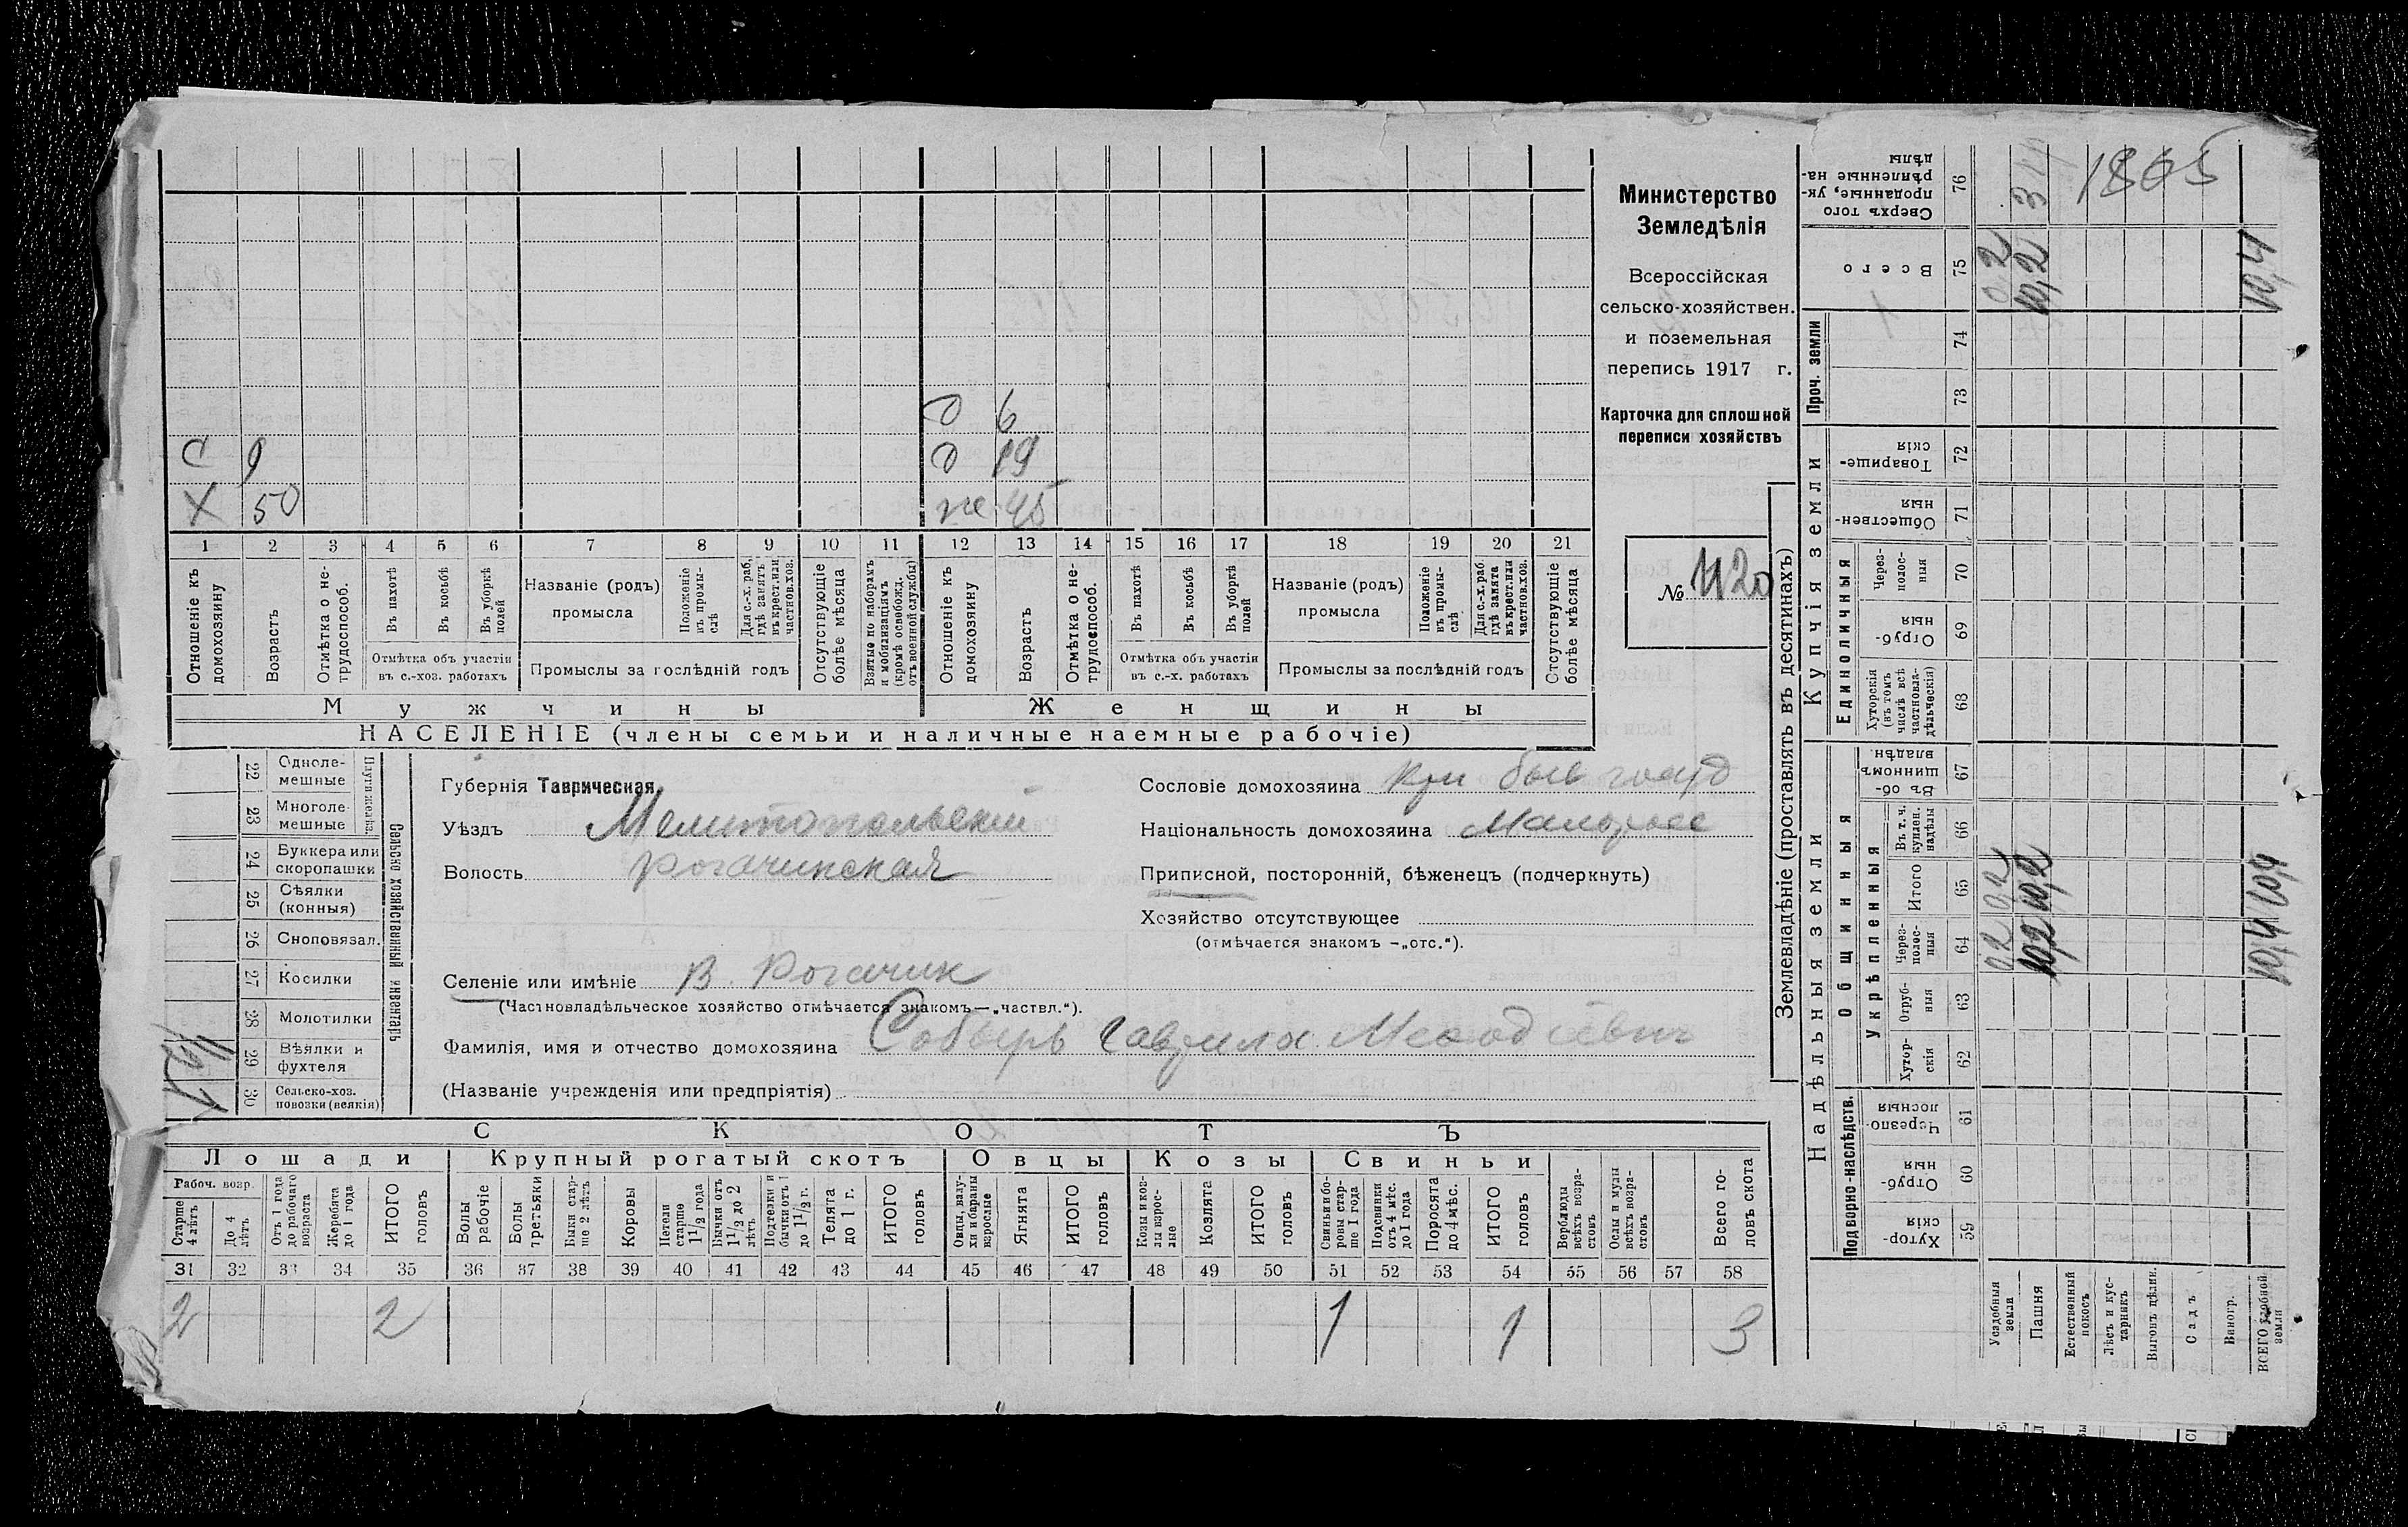 Министерство
Земледѣлія
Всероссійская
сельско-хозяйствен.
и поземельная
перепись 1917 г.
Карточка для сплошной
переписи хозяйствъ
№ 1120
О 6
С 9 О 19
Х 50 же 45
1 2 3 4 5 6 7 8 9 10 11 12 13 14 15 16 17 18 19 20 21
Отношеніе къ домохозяину
Возрастъ
Отмѣтка о не-трудоспособ.
Въ пахотѣ
Въ косьбѣ
Въ уборкѣ полей
Отмѣтка объ участіи
въ с.-хоз. работахъ
Названіе (родъ)
промысла
Положеніе въ промы-слѣ
Для с.-х. раб. гдѣ занятъ въ крест. или частнов. хоз.
Промыслы за послѣдній годъ
Отсутствующіе болѣе мѣсяца
Взятые по наборамъ и мобилизаціямъ (кромѣ освобожд. отъ военной службы)
Отношеніе къ домохозяину
Возрастъ
Отмѣтка о не-трудоспособ.
Въ пахотѣ
Въ косьбѣ
Въ уборкѣ полей
Отмѣтка объ участіи
въ с.-х. работахъ
Названіе (родъ)
промысла
Положеніе въ промы-слѣ
Для с.-х. раб. гдѣ занята въ крест. или частнов. хоз.
Промыслы за послѣдній годъ
Отсутствующіе болѣе мѣсяца
Мужчины Женщины
НАСЕЛЕНІЕ (члены семьи и наличные наемные рабочіе)
Сельско хозяйственный инвентарь
22 Одноле-мешные
23 Многоле-мешные
24 Буккера или скоропашки
25 Сѣялки (конныя)
26 Сноповязал.
27 Косилки
28 Молотилки
29 Вѣялки и фухтеля
30 Сельско-хоз. повозки (всякія)
Губернія Таврическая
Уѣздъ Мелитопольскій
Волость Рогачинская
Селеніе или имѣніе В. Рогачик
(Частновладѣльческое хозяйство отмѣчается знакомъ—„частвл.“).
Фамилія, имя и отчество домохозяина Собырь Гаврила Меѳодіевич
(Названіе учрежденія или предпріятія)
Сословіе домохозяина кри быв госуд
Національность домохозяина Малоросс
Приписной, посторонній, бѣженецъ (подчеркнуть)
Хозяйство отсутствующее
(отмѣчается знакомъ —„отс.“).
СКОТЪ
Лошади Крупный рогатый скотъ Овцы Козы Свиньи
Рабоч. возр.
Старше 4 лѣтъ
До 4 лѣтъ
Отъ 1 года до рабочаго возраста
Жеребята до 1 года
ИТОГО головъ
Волы рабочіе
Волы третьяки
Быки стар-ше 2 лѣтъ
Коровы
Нетели старше 1½ года
Бычки отъ 1½ до 2 лѣтъ
Подтелки и бычки отъ 1 до 1½ г.
Телята до 1 г.
ИТОГО головъ
Овцы, валу-хи и бараны взрослые
Ягнята
ИТОГО головъ
Козы и коз-лы взрос-лые
Козлята
ИТОГО головъ
Свиньи и бо-ровы стар-ше 1 года
Подсвинки отъ 4 мѣс. до 1 года
Поросята до 4 мѣс.
ИТОГО головъ
Верблюды всѣхъ возра-стовъ
Ослы и мулы всѣхъ возра-стовъ
Всего го-ловъ скота
31 32 33 34 35 36 37 38 39 40 41 42 43 44 45 46 47 48 49 50 51 52 53 54 55 56 57 58
2 2 1 1 3
Землевладѣніе (проставлять въ десятинахъ)
Надѣльныя земли Купчія земли Проч. земли
Подворно-наслѣдств.
Общинныя
Укрѣпленныя
Единоличныя
59 Хутор-скія
60 Отруб-ныя
61 Черезпо-лосныя
62 Хутор-скія
63 Отруб-ныя
64 Через-полос-ныя
65 Итого
66 Въ т. ч. куплен. надѣлы
67 Въ об-щинномъ владѣн.
68 Хуторскія (въ томъ числѣ всѣ частновла-дѣльческія)
69 Отруб-ныя
70 Через-полос-ныя
71 Обществен-ныя
72 Товарище-скія
73
74
75 Всего
76 Сверхъ того проданные, ук-рѣпленные на-дѣлы
Усадебныя земли 0,2 0,2 0,2
Пашня 10,2 10,2 10,2
Естественный покосъ
Лѣсъ и кус-тарникъ
Выгонъ цѣлин.
Садъ
Виногр.
ВСЕГО удобной земли 10,4 10,4 10,4
1865